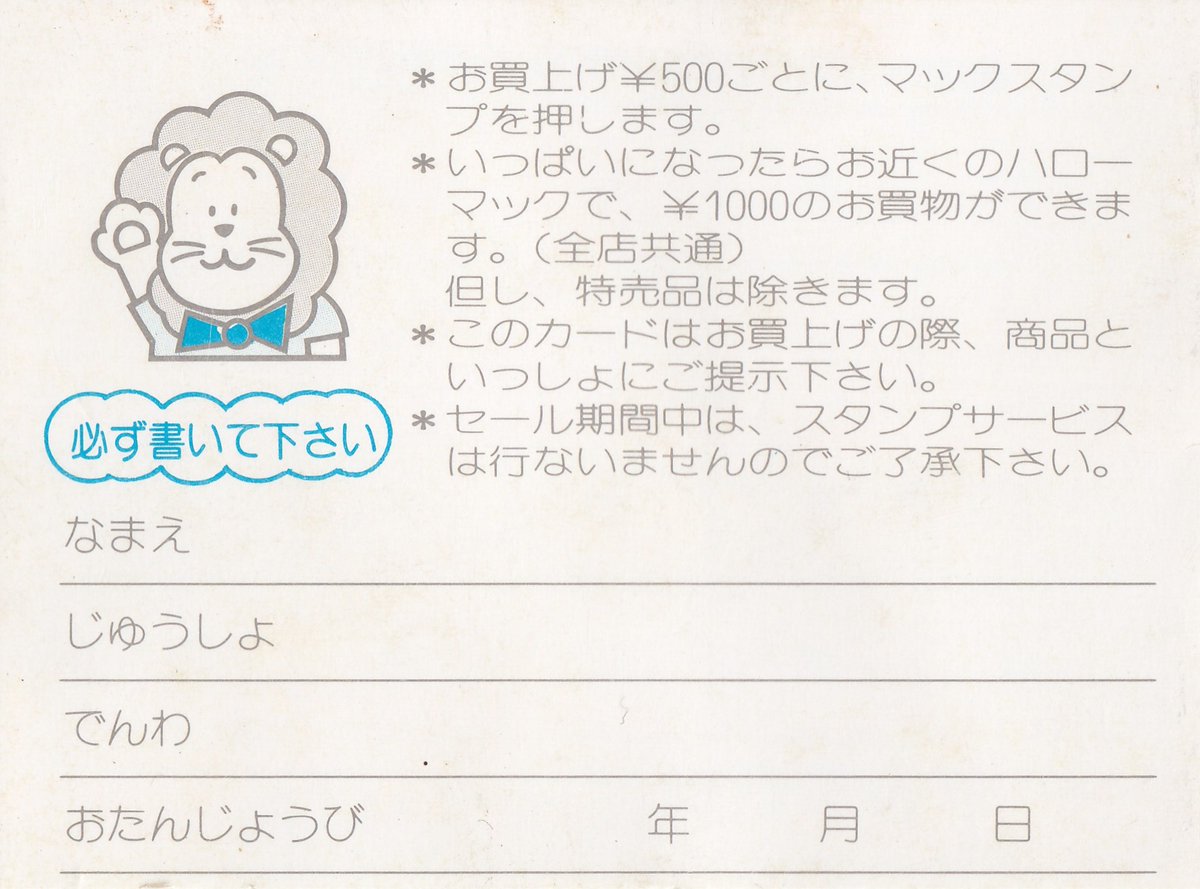 ＊お買上げ￥500ごとに、マックスタン
プを押します。
＊いっぱいになったらお近くのハロー
マックで、￥1000のお買物ができま
す。（全店共通）
但し、特売品は除きます。
＊このカードはお買上げの際、商品と
いっしょにご提示下さい。
＊セール期間中は、スタンプサービス
は行ないませんのでご了承下さい。
必ず書いて下さい
なまえ
じゅうしょ
でんわ
おたんじょうび 年 月 日